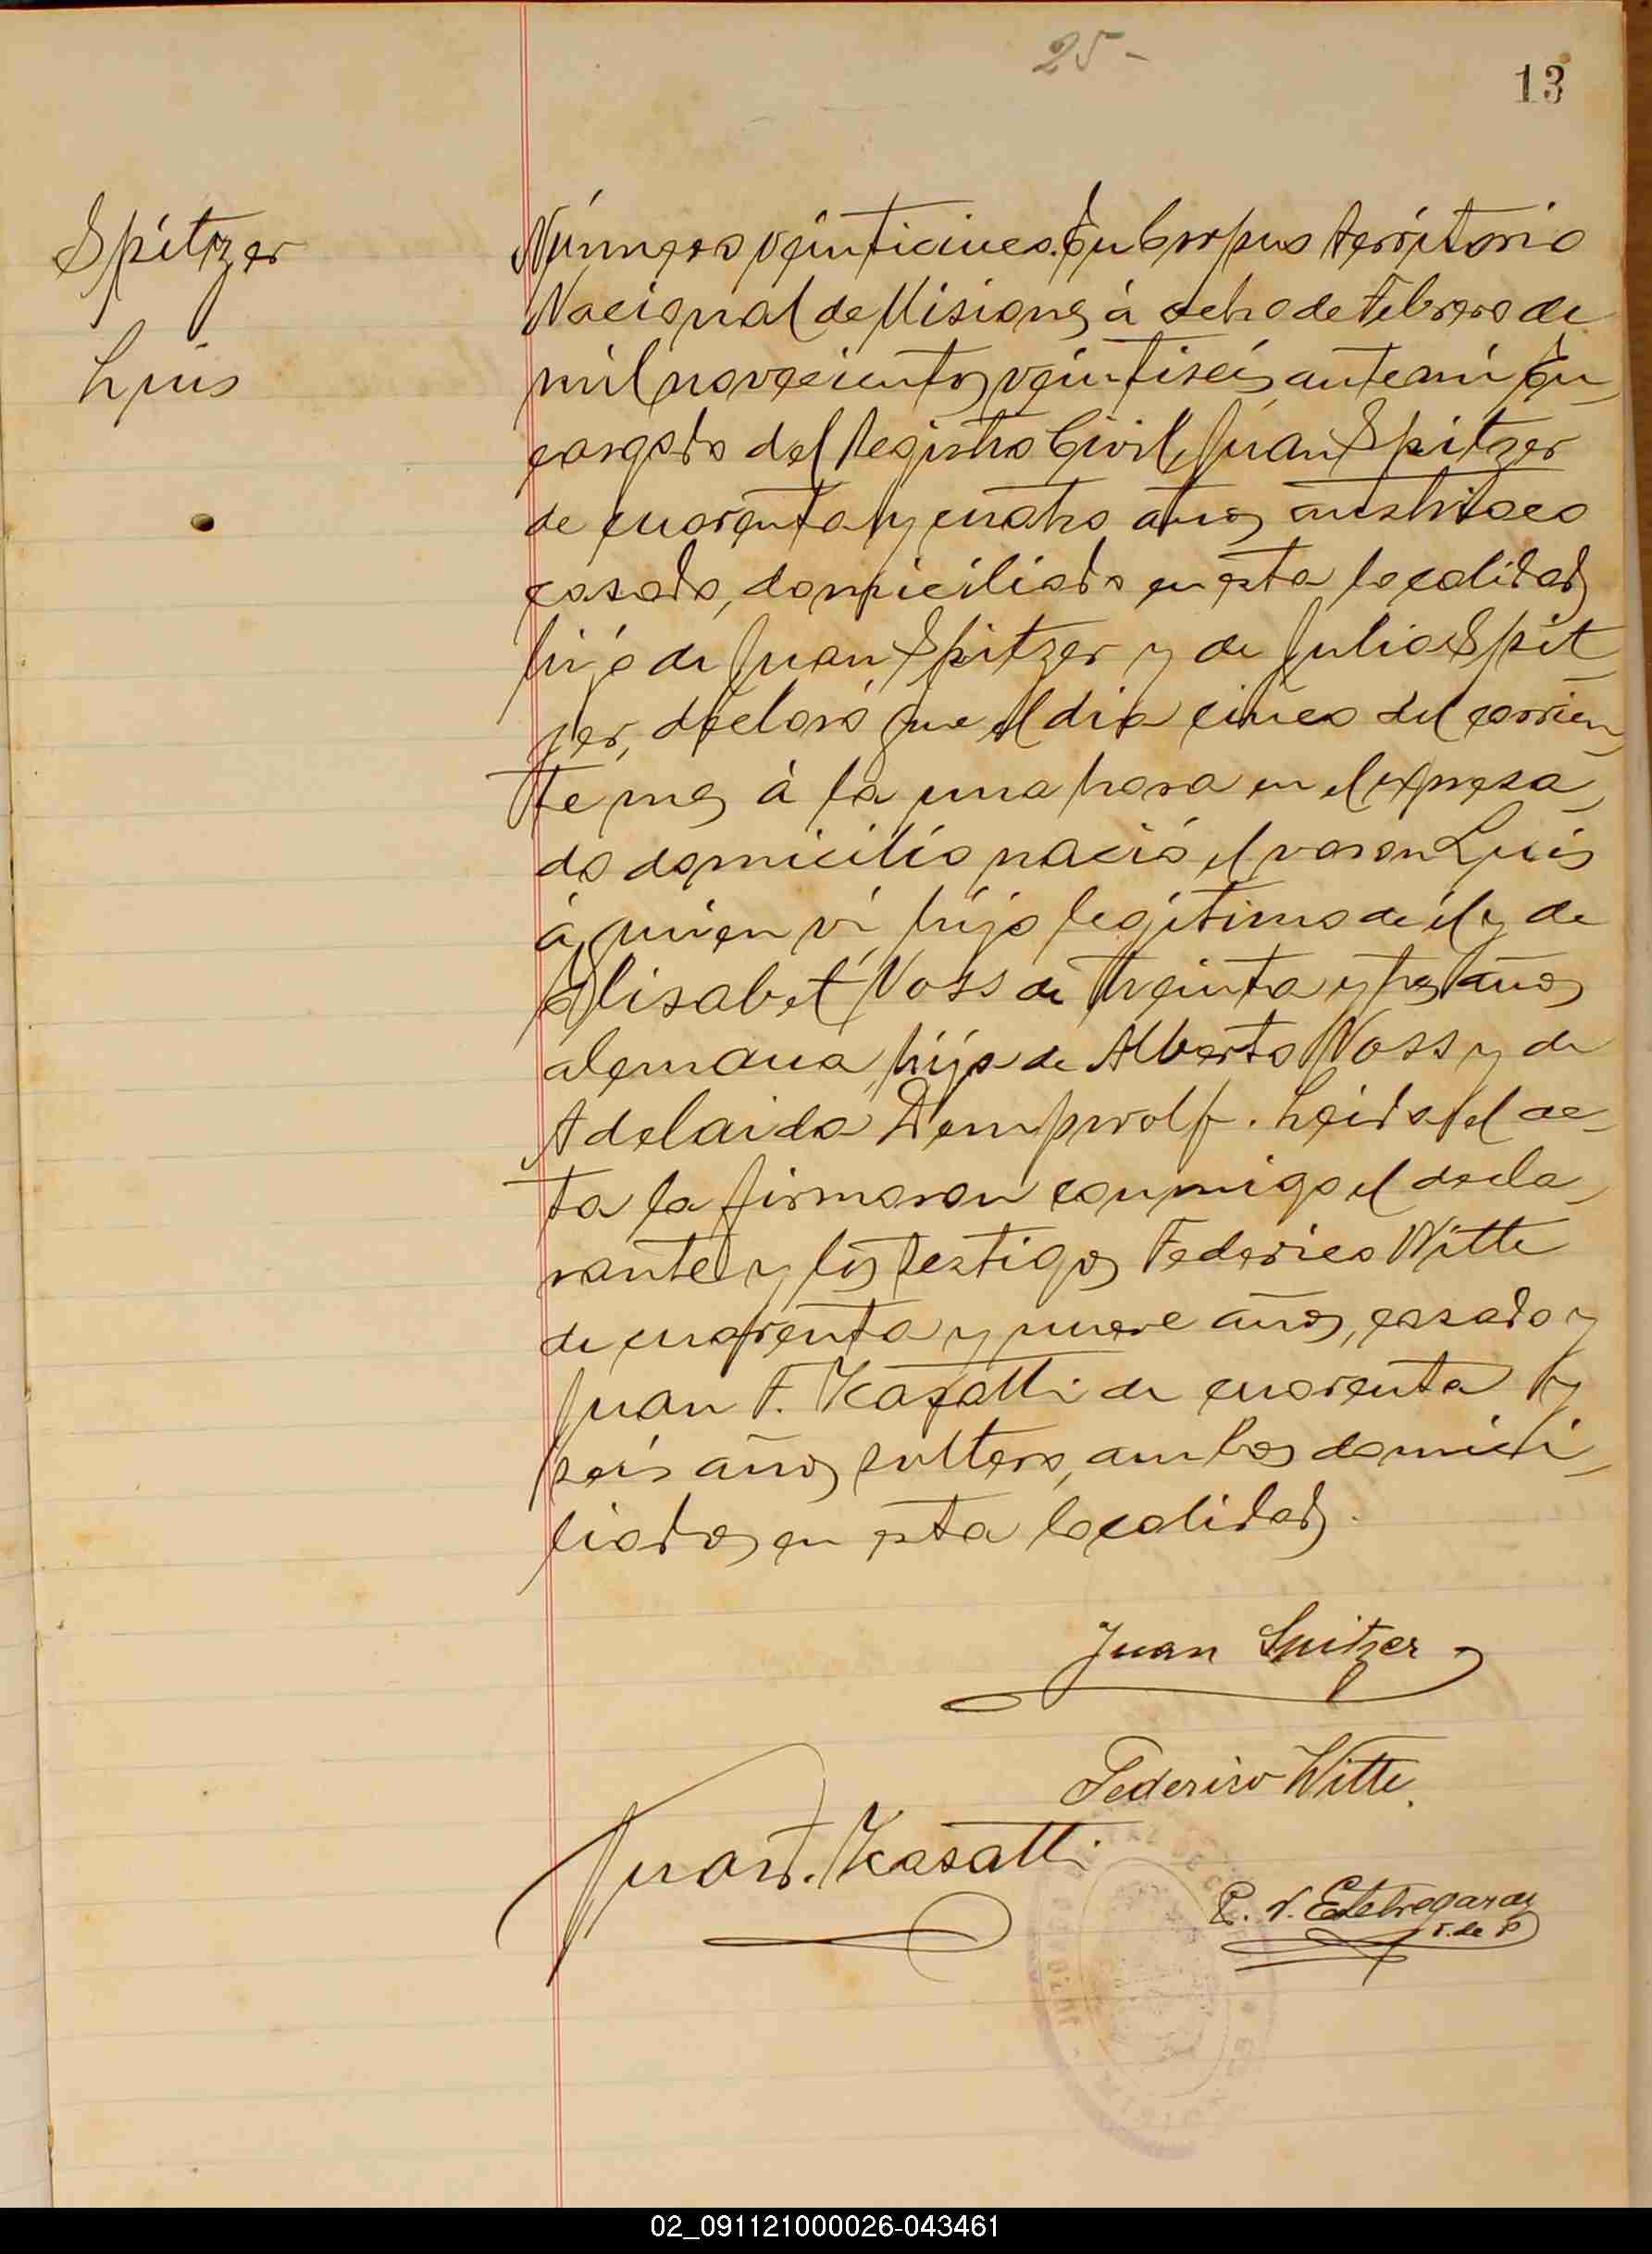 25-
13
Spitzer
Luis
Número veinticinco. En Corpus territorio
Nacional de Misiones á ocho de Febrero de
mil novecientos veintiseis, ante mi En-
cargado del Registro Civil, Juan Spitzer
de cuarenta y cuatro años austriaco
casado, domiciliado en esta localidad
hijo de Juan Spitzer y de Julia Spit-
zer, declaró que el dia cinco del corrien-
te mes á la una hora en el expresa-
do domicilio nació el varon Luis
á quien vi, hijo legitimo de él y de
Elisabet Voss de treinta y tres años
alemana, hija de Alberto Voss y de
Adelaida Dempwolf. Leida el ac-
ta la firmaron conmigo el decla-
rante y los testigos Federico Witte
de cuarenta y nueve años, casado y
Juan F. Kasatti de cuarenta y
seis años soltero, ambos domici-
liados en esta localidad.
Juan Spitzer
Federico Witte.
Juan F. Kasatti
J. de P
02_091121000026-043461